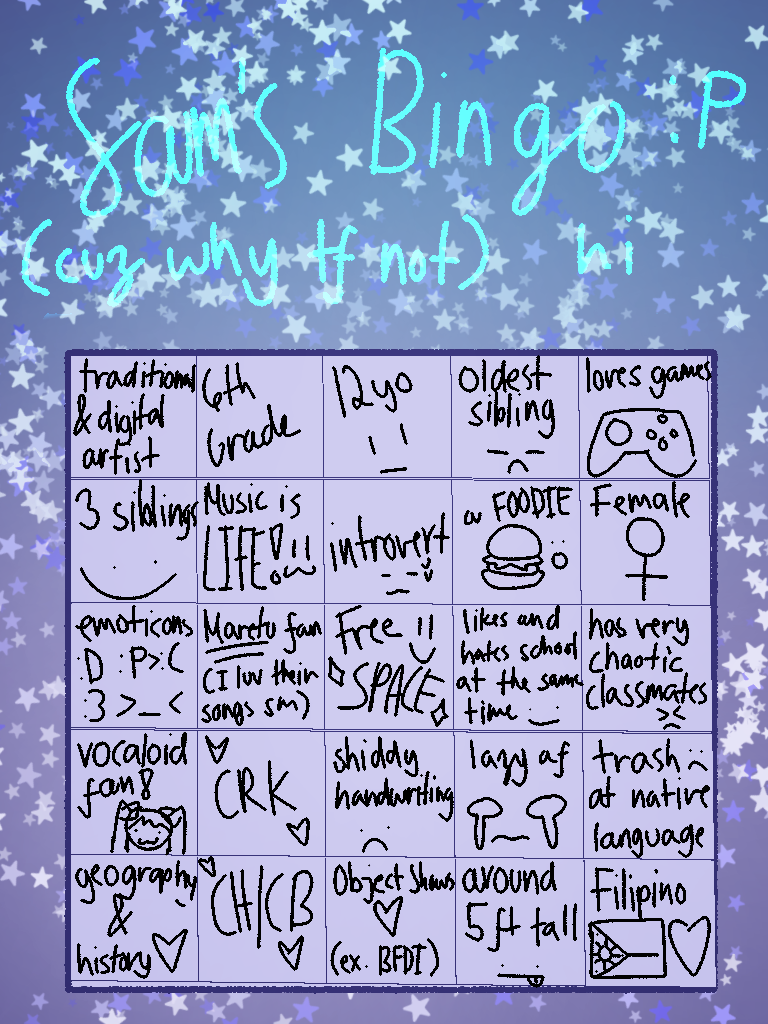 Sam's Bingo :P
(cuz why tf not) hi
traditional
& digital
artist
6th
Grade
12yo
oldest
sibling
loves games
3 siblings
Music is
LIFE!!!
introvert
a FOODIE
:O
Female
emoticons
:D :P >:(
:3 >_<
Maretu fan
(I luv their
songs sm)
Free
SPACE
likes and
hates school
at the same
time
has very
chaotic
classmates
vocaloid
fan!
CRK
shiddy
handwriting
lazy af
trash
at native
language
geography
&
history
CH/CB
Object Shows
(ex. BFDI)
around
5ft tall
Filipino